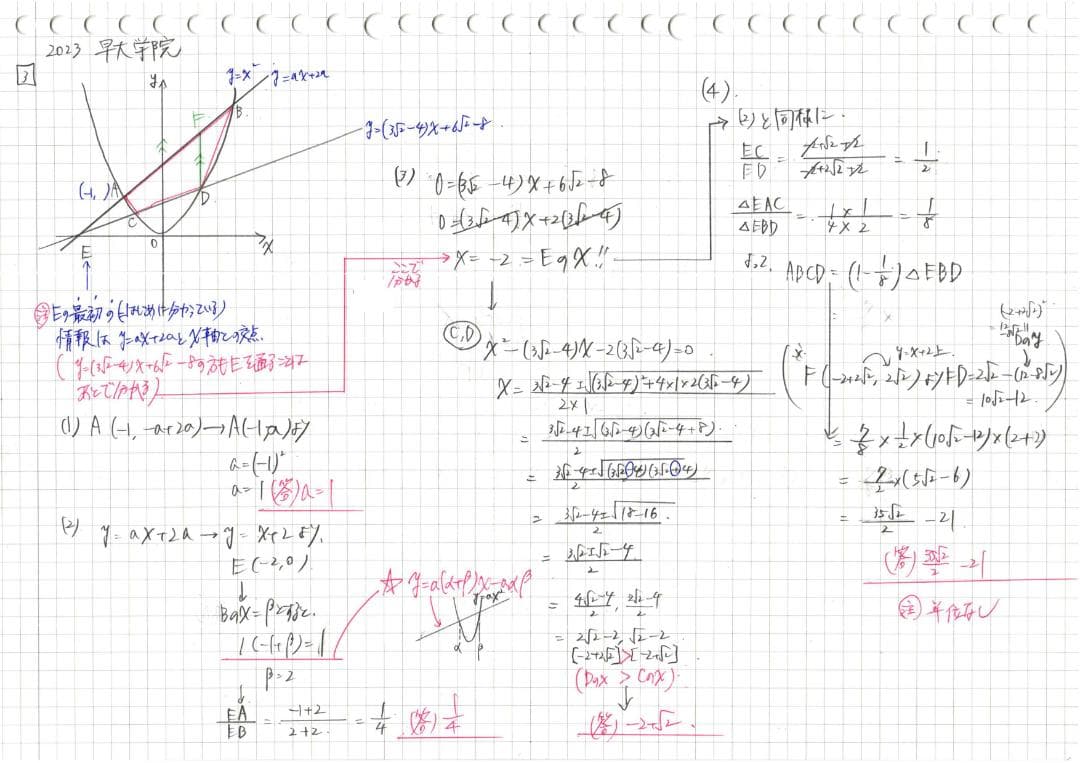 2023 早大学院
3
y
y=x²
y=ax+2a
B
F
y=(3√2-4)x+6√2-8
(-1, )A
D
C
E
O
x
注 Eの最初の(はじめに分かっている)
情報は y=ax+2aとx軸との交点.
( y=(3√2-4)x+6√2-8の方もEを通ることは
あとで分かる)
ここで
分かる
(1) A (-1, -a+2a) → A(-1, a)より
a=(-1)²
a=1 (答) a=1
(2) y=ax+2a → y=x+2より.
E(-2,0)
↓
Bのx=βとすると.
1(-1+β)=1
β=2
↓
EA/EB = (-1+2)/(2+2) = 1/4 (答) 1/4
☆ y=a(α+β)x-aαβ
y=ax²
α
β
(3) 0=(3√2-4)x+6√2-8
0=(3√2-4)x+2(3√2-4)
x=-2=Eのx!!
↓
C,D
x²-(3√2-4)x-2(3√2-4)=0.
x=(3√2-4±√((3√2-4)²+4×1×2(3√2-4)))/(2×1)
=(3√2-4±√((3√2-4)(3√2-4+8)))/2
=(3√2-4±√((3√2-4)(3√2+4)))/2
=(3√2-4±√(18-16))/2
=(3√2±√2-4)/2
=(4√2-4)/2, (2√2-4)/2
=2√2-2, √2-2
[-2+2√2]>[-2+√2]
(Dのx > Cのx)
↓
(答) -2+√2.
(4).
(2)と同様に.
EC/ED = (-2+√2+2)/(-2+2√2+2) = 1/2
△EAC/△EBD = (1×1)/(4×2) = 1/8
よって. ABCD=(1-1/8)△EBD
(-2+2√2)²
=12-8√2
Dのy
y=x+2より
(※ F(-2+2√2, 2√2)よりFD=2√2-(12-8√2)
=10√2-12.)
=7/8×1/2×(10√2-12)×(2+2)
=7/2×(5√2-6)
=35√2/2-21
(答) 35√2/2-21
注 単位なし